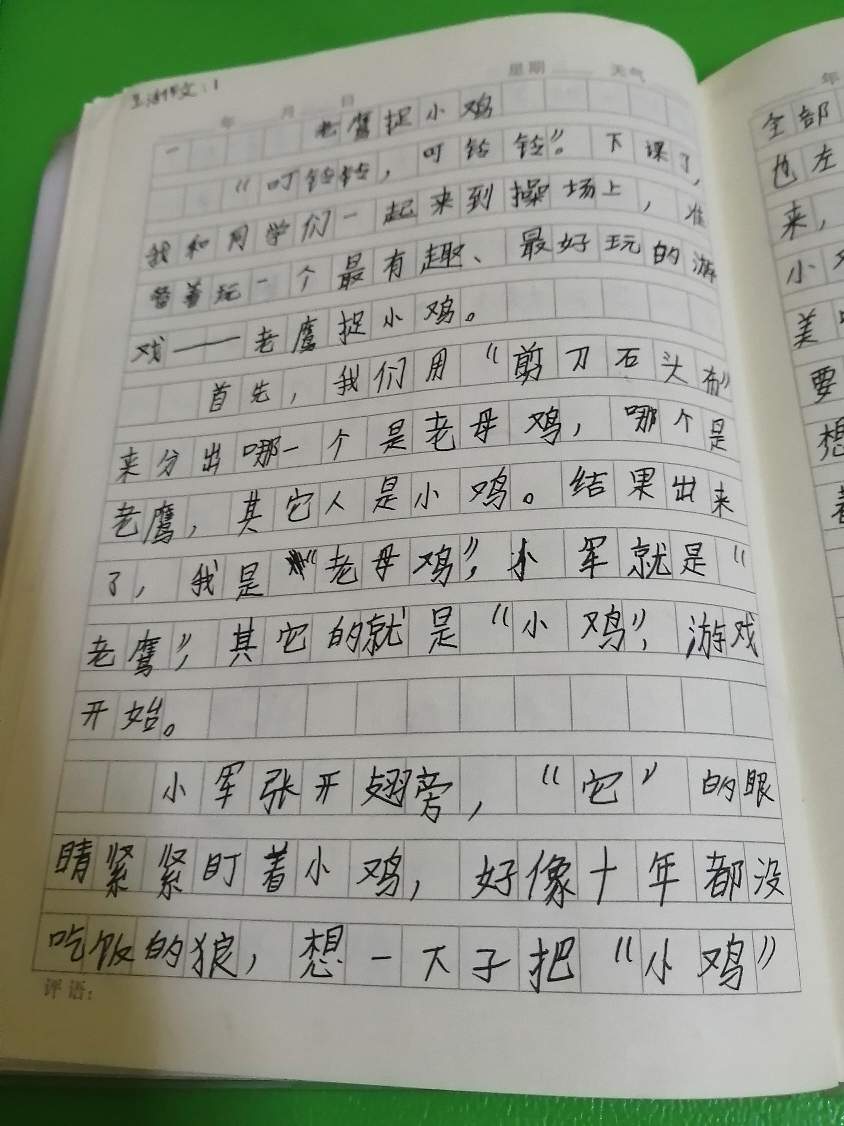 生活作文：1
年 月 日 星期 天气
老鹰捉小鸡
“叮铃铃，叮铃铃”。下课了，
我和同学们一起来到操场上，准
备着玩一个最有趣、最好玩的游
戏——老鹰捉小鸡。
首先，我们用“剪刀石头布”
来分出哪一个是老母鸡，哪个是
老鹰，其它人是小鸡。结果出来
了，我是“老母鸡”，小军就是“
老鹰”，其它的就是“小鸡”，游戏
开始。
小军张开翅旁，“它”的眼
睛紧紧盯着小鸡，好像十年都没
吃饭的狼，想一下子把“小鸡”
评语：
年
全部
也左
来，
小
美
要
想
着